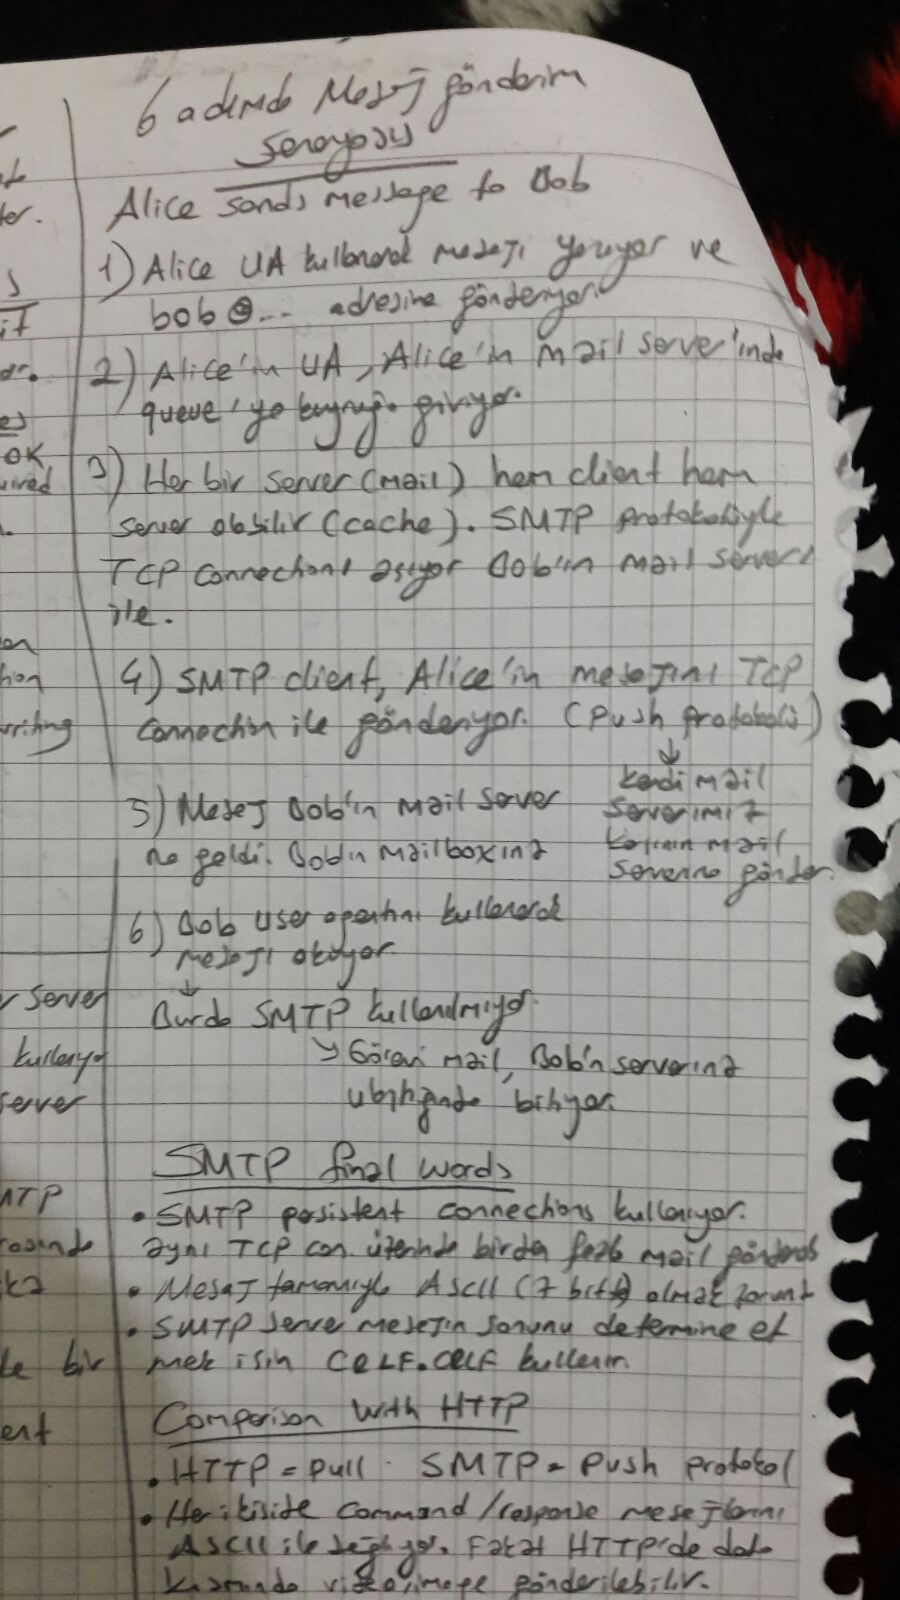 6 adımda Mesaj gönderim
Senaryosu
Alice sends message to Bob
1) Alice UA kullanarak mesajı yazıyor ve
bob@... adresine gönderiyor.
2) Alice'in UA, Alice'in mail server'inde
queue'ya kuyruğa giriyor.
3) Her bir server (mail) hem client hem
server olabilir (cache). SMTP protokolüyle
TCP connectionı açıyor Bob'ın mail serverı
ile.
4) SMTP client, Alice'in mesajını TCP
connection ile gönderiyor. (Push protokolü)
↓
kendi mail
serverımız
karşının mail
serverına gönder.
5) Mesaj Bob'ın mail server
na geldi. Bob'ın mailboxına
6) Bob user agentını kullanarak
mesajı okuyor.
↓
Burda SMTP kullanılmıyor.
↘ Görevi mail, Bob'ın serverına
ulaştığında bitiyor.
SMTP final words
• SMTP persistent connections kullanıyor.
aynı TCP con. üzerinde birden fazla mail gönderab
• Mesaj tamamıyla ASCII (7 bitte) olmak zorunt
• SMTP server mesajın sonunu determine et
mek için CRLF.CRLF kullanır.
Comparison with HTTP
• HTTP = pull SMTP = Push protokol
• Her ikiside command/response mesajlarını
ASCII ile sağlıyor. Fakat HTTP'de data
kısmında video, image gönderilebilir.
ter.
it
OK
uired
hon
writing
server
kullanıyo
server
MTP
rasında
le bir
ent